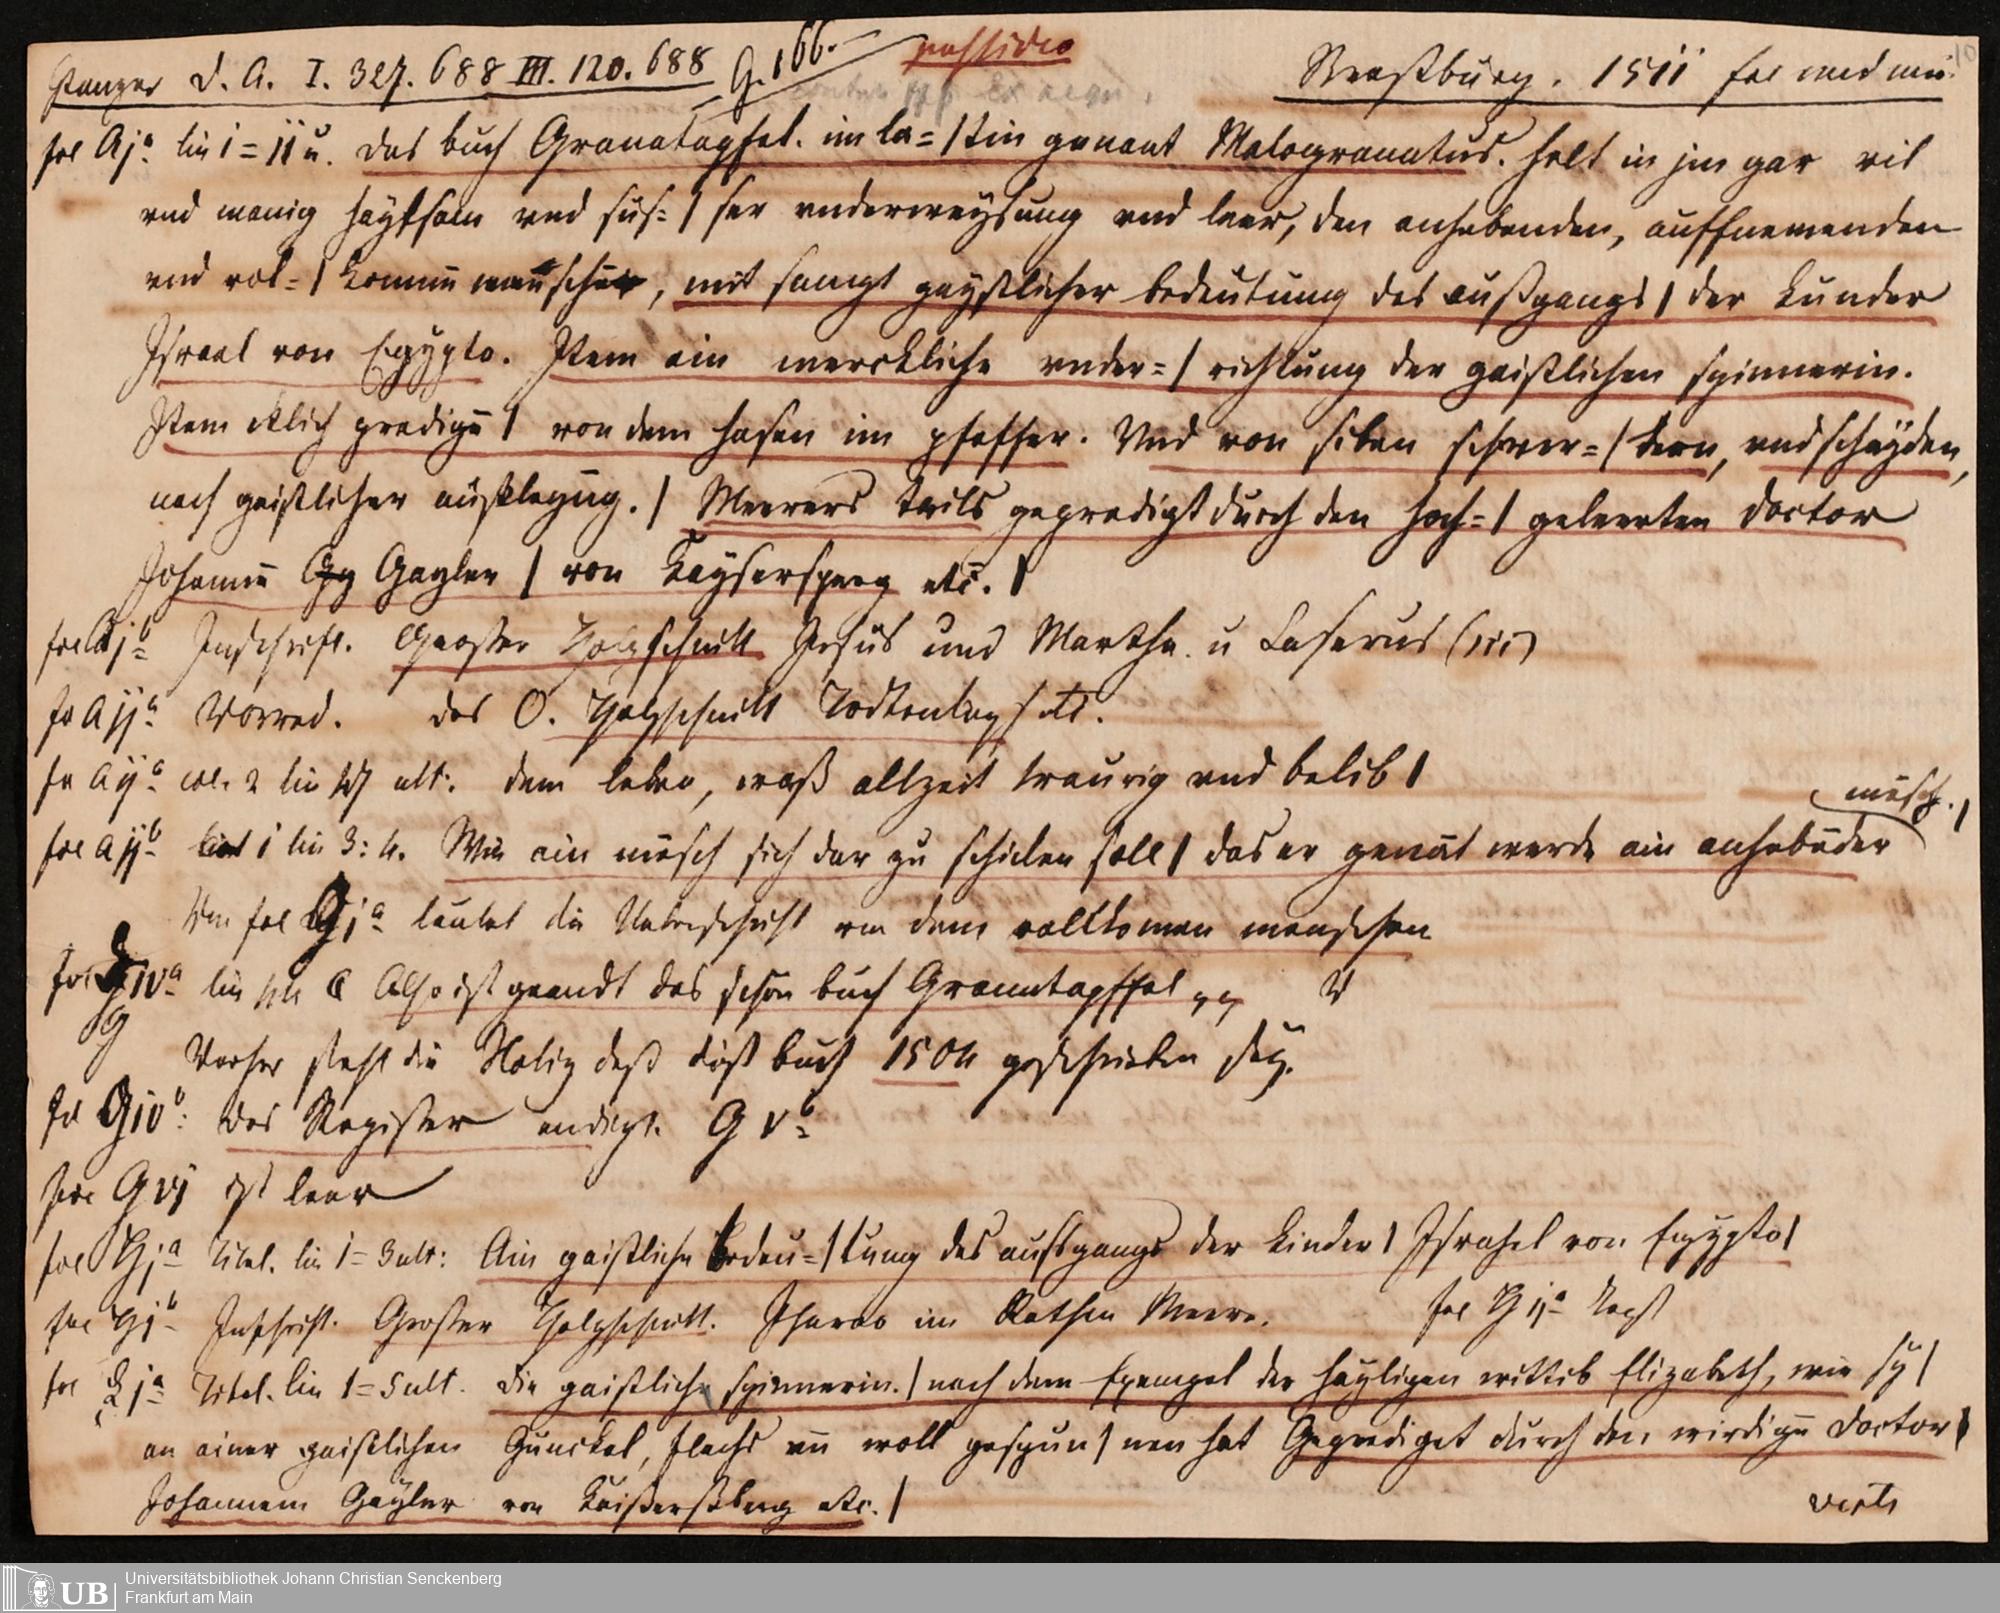 Panzer d. A. I. 327. 688 III. 120. 688 G. 166. possideo Strassburg. 1511 fol
fol Aj a lin 1 = 11 u. das buch Granatapfel. im la= | tin genant Malogranatus. helt in jm gar vil
vnd manig haylsam vnd süs= | ser vnderweysung vnd leer, den anhebenden, auffnemenden
vnd vol= | komnnē mēschen, mit sampt gaystlicher bedeutung des außgangs | der kunder
Israel von Egypto. Item ain merckliche vnder= | richtung der gaistlichen spinnerin.
Item etlich predigē | von dem hasen im pfeffer. Vnd von siben schwer= | tern, vnd schayden,
nach gaistlicher außlegūg. | Meerers tails gepredigt durch den hoch= | geleerten doctor
Johannē Gayler | von Kaysersperg etc. |
fol Aj b Inschrift. Grosser Holzschnitt Jesus und Martha u Lasarus (sic)
fo A ij a Vorred. das O. Holzschnitt etc.
fo A ij a col. 2 lin ult: dem leben, was allzeit traurig vnd belib |
fol A ij b 1 lin 3: 4. Wie ain mēsch sich dar zu schicken soll | das er genāt werde ain anhebēder mēsch. |
Von fol Gj a lautet die Ueberschrift von dem vollkomen menschen
fol G iv a lin 44 Also ist geendt das schon buch Granatapffel
Vorher steht die Notiz daß dieß buch 1504 geschrieben sey.
fol G iv b: das Register endigt. G v b
fol G vj ist leer
fol Hj a Titel. lin 1 = 3 ult: Ain gaistliche bedeu= | tung des aussgangs der kinder | Israhel von Egypto |
fol Hj b Inschrift. Grosser Holzschnitt. Pharao im Rothen Meere. fol H ij a Text
fol j a Titel. lin 1 = 5 ult. die gaistliche spinnerin. | nach dem Exempel der hayligen wittib Elizabeth, wie sy |
an ainer gaistlichen Gunckel, flachs vn̄ woll gespun | nen hat Geprediget durch den wirdigē doctor |
Johannem Gayler von Kaiserssberg etc. |
verte
Universitätsbibliothek Johann Christian Senckenberg
UB Frankfurt am Main